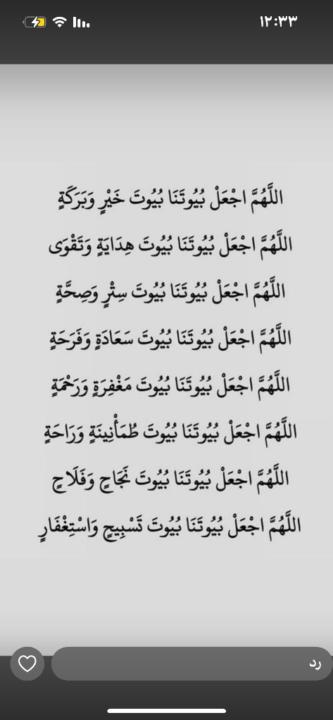 ١٢:٣٣
اللَّهُمَّ اجْعَلْ بُيُوتَنَا بُيُوتَ خَيْرٍ وَبَرَكَةٍ
اللَّهُمَّ اجْعَلْ بُيُوتَنَا بُيُوتَ هِدَايَةٍ وَتَقْوَى
اللَّهُمَّ اجْعَلْ بُيُوتَنَا بُيُوتَ سِتْرٍ وَصِحَّةٍ
اللَّهُمَّ اجْعَلْ بُيُوتَنَا بُيُوتَ سَعَادَةٍ وَفَرَحَةٍ
اللَّهُمَّ اجْعَلْ بُيُوتَنَا بُيُوتَ مَغْفِرَةٍ وَرَحْمَةٍ
اللَّهُمَّ اجْعَلْ بُيُوتَنَا بُيُوتَ طُمَأْنِينَةٍ وَرَاحَةٍ
اللَّهُمَّ اجْعَلْ بُيُوتَنَا بُيُوتَ نَجَاحٍ وَفَلَاحٍ
اللَّهُمَّ اجْعَلْ بُيُوتَنَا بُيُوتَ تَسْبِيحٍ وَاسْتِغْفَارٍ
رد